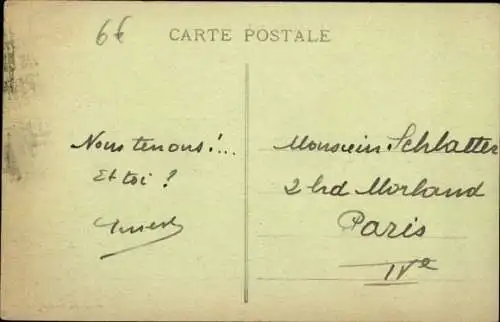 6€
CARTE POSTALE
Nous tenons !...
Et toi ?
Monsieur Schlatter
2 bd Morland
Paris
IVe